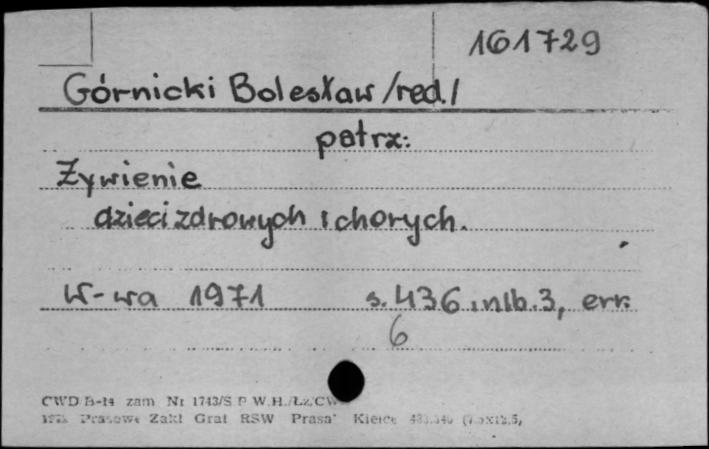 161729
Górnicki Bolesław /red./
patrz:
Żywienie
dzieci zdrowych i chorych.
W-wa 1971 s. 436, nlb. 3, err.
6
CWD B-14 zam Nr 1743/S P W.H./Łz/CW
Prasowe Zakł Graf RSW Prasa" Kielce